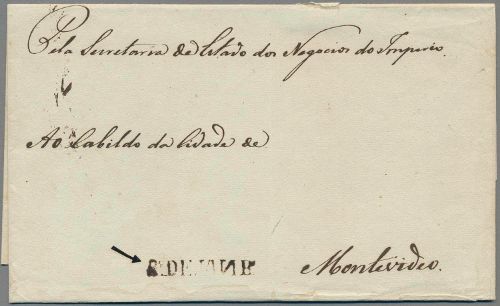 Pela Secretaria de Estado dos Negocios do Imperio.
Ao Cabildo da Cidade de
Montevideo.